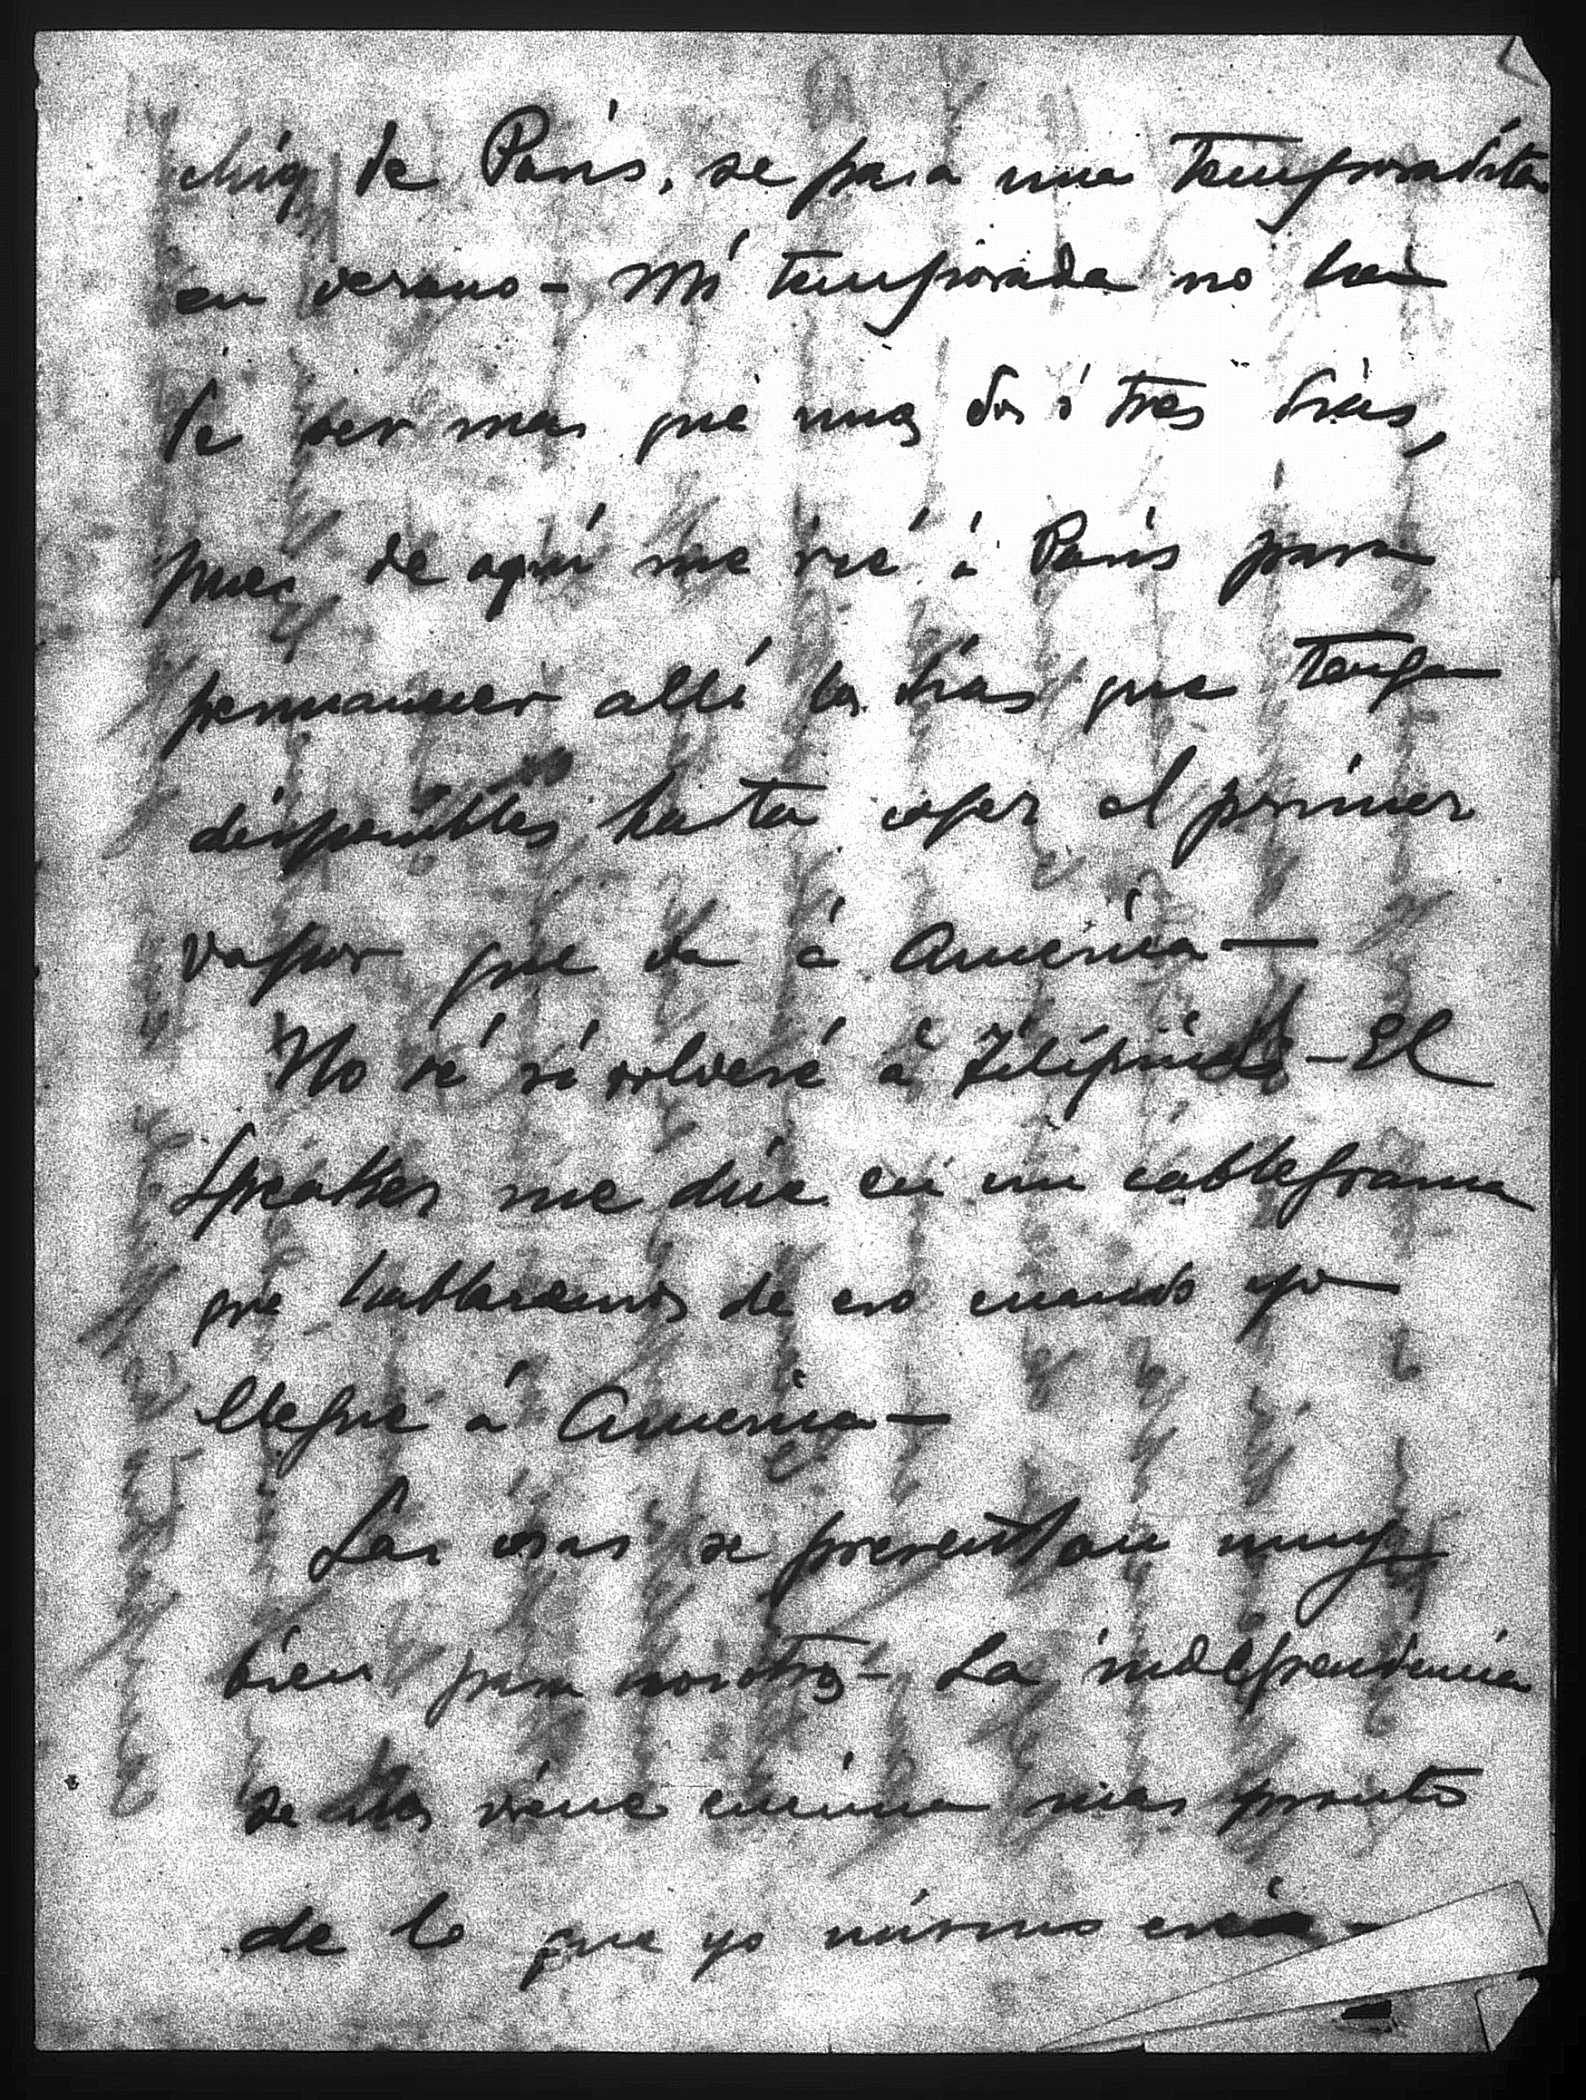 chiq de Paris, se pasa una temporadita
en verano - Mi temporada no ha
de ser mas que unos dos ó tres dias,
pues de aquí me iré á Paris para
permanecer allí los dias que tenga
disponibles hasta coger el primer
vapor que va á America —
No sé si volveré á Filipinas - El
Speaker me dice en un cablegrama
que hablaremos de eso cuando yo
llegue á America —
Las cosas se presentan muy
bien para nosotros - La independencia
se nos viene encima mas pronto
de lo que yo mismo creia -